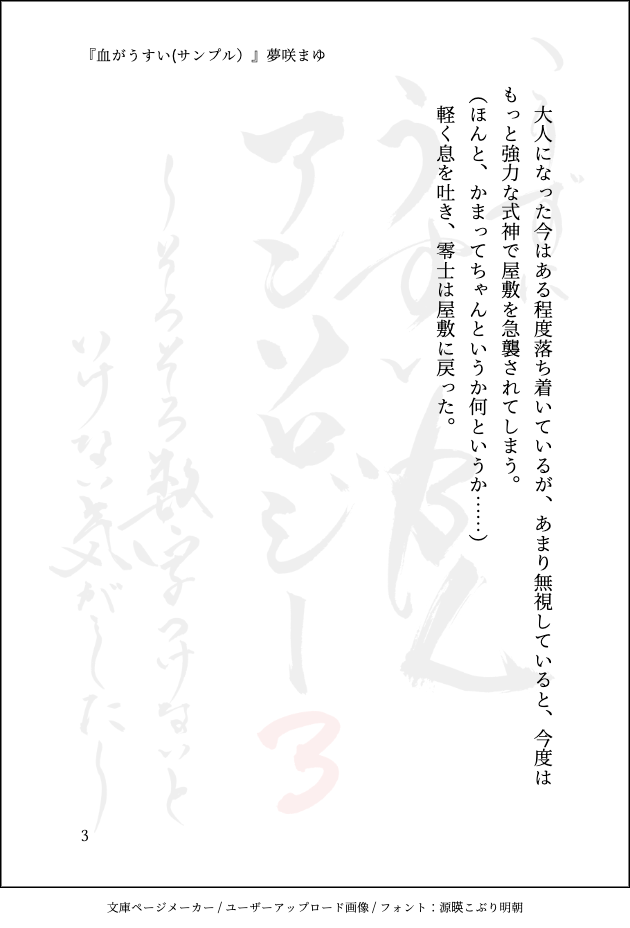 『血がうすい(サンプル）』夢咲まゆ
大人になった今はある程度落ち着いているが、あまり無視していると、今度は
もっと強力な式神で屋敷を急襲されてしまう。
(ほんと、かまってちゃんというか何というか……)
軽く息を吐き、零士は屋敷に戻った。
アンソロジー3
〜そろそろ数字つけないと
いけない気がした〜
3
文庫ページメーカー / ユーザーアップロード画像 / フォント：源暎こぶり明朝